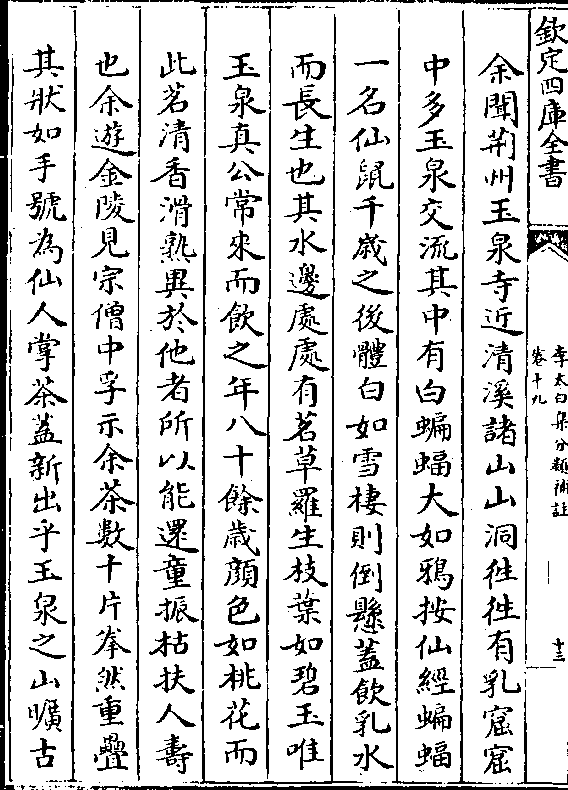 欽定四庫全書
李太白集分類補註
卷十九
十三
余聞荆州玉泉寺近清溪諸山山洞徃徃有乳窟窟
中多玉泉交流其中有白蝙蝠大如鴉按仙經蝙蝠
一名仙鼠千歲之後體白如雪棲則倒懸蓋飲乳水
而長生也其水邊處處有茗草羅生枝葉如碧玉唯
玉泉真公常來而飲之年八十餘歲顔色如桃花而
此茗清香滑熟異於他者所以能還童振枯扶人壽
也余遊金陵見宗僧中孚示余茶數十片拳然重疊
其狀如手號為仙人掌茶蓋新出乎玉泉之山曠古